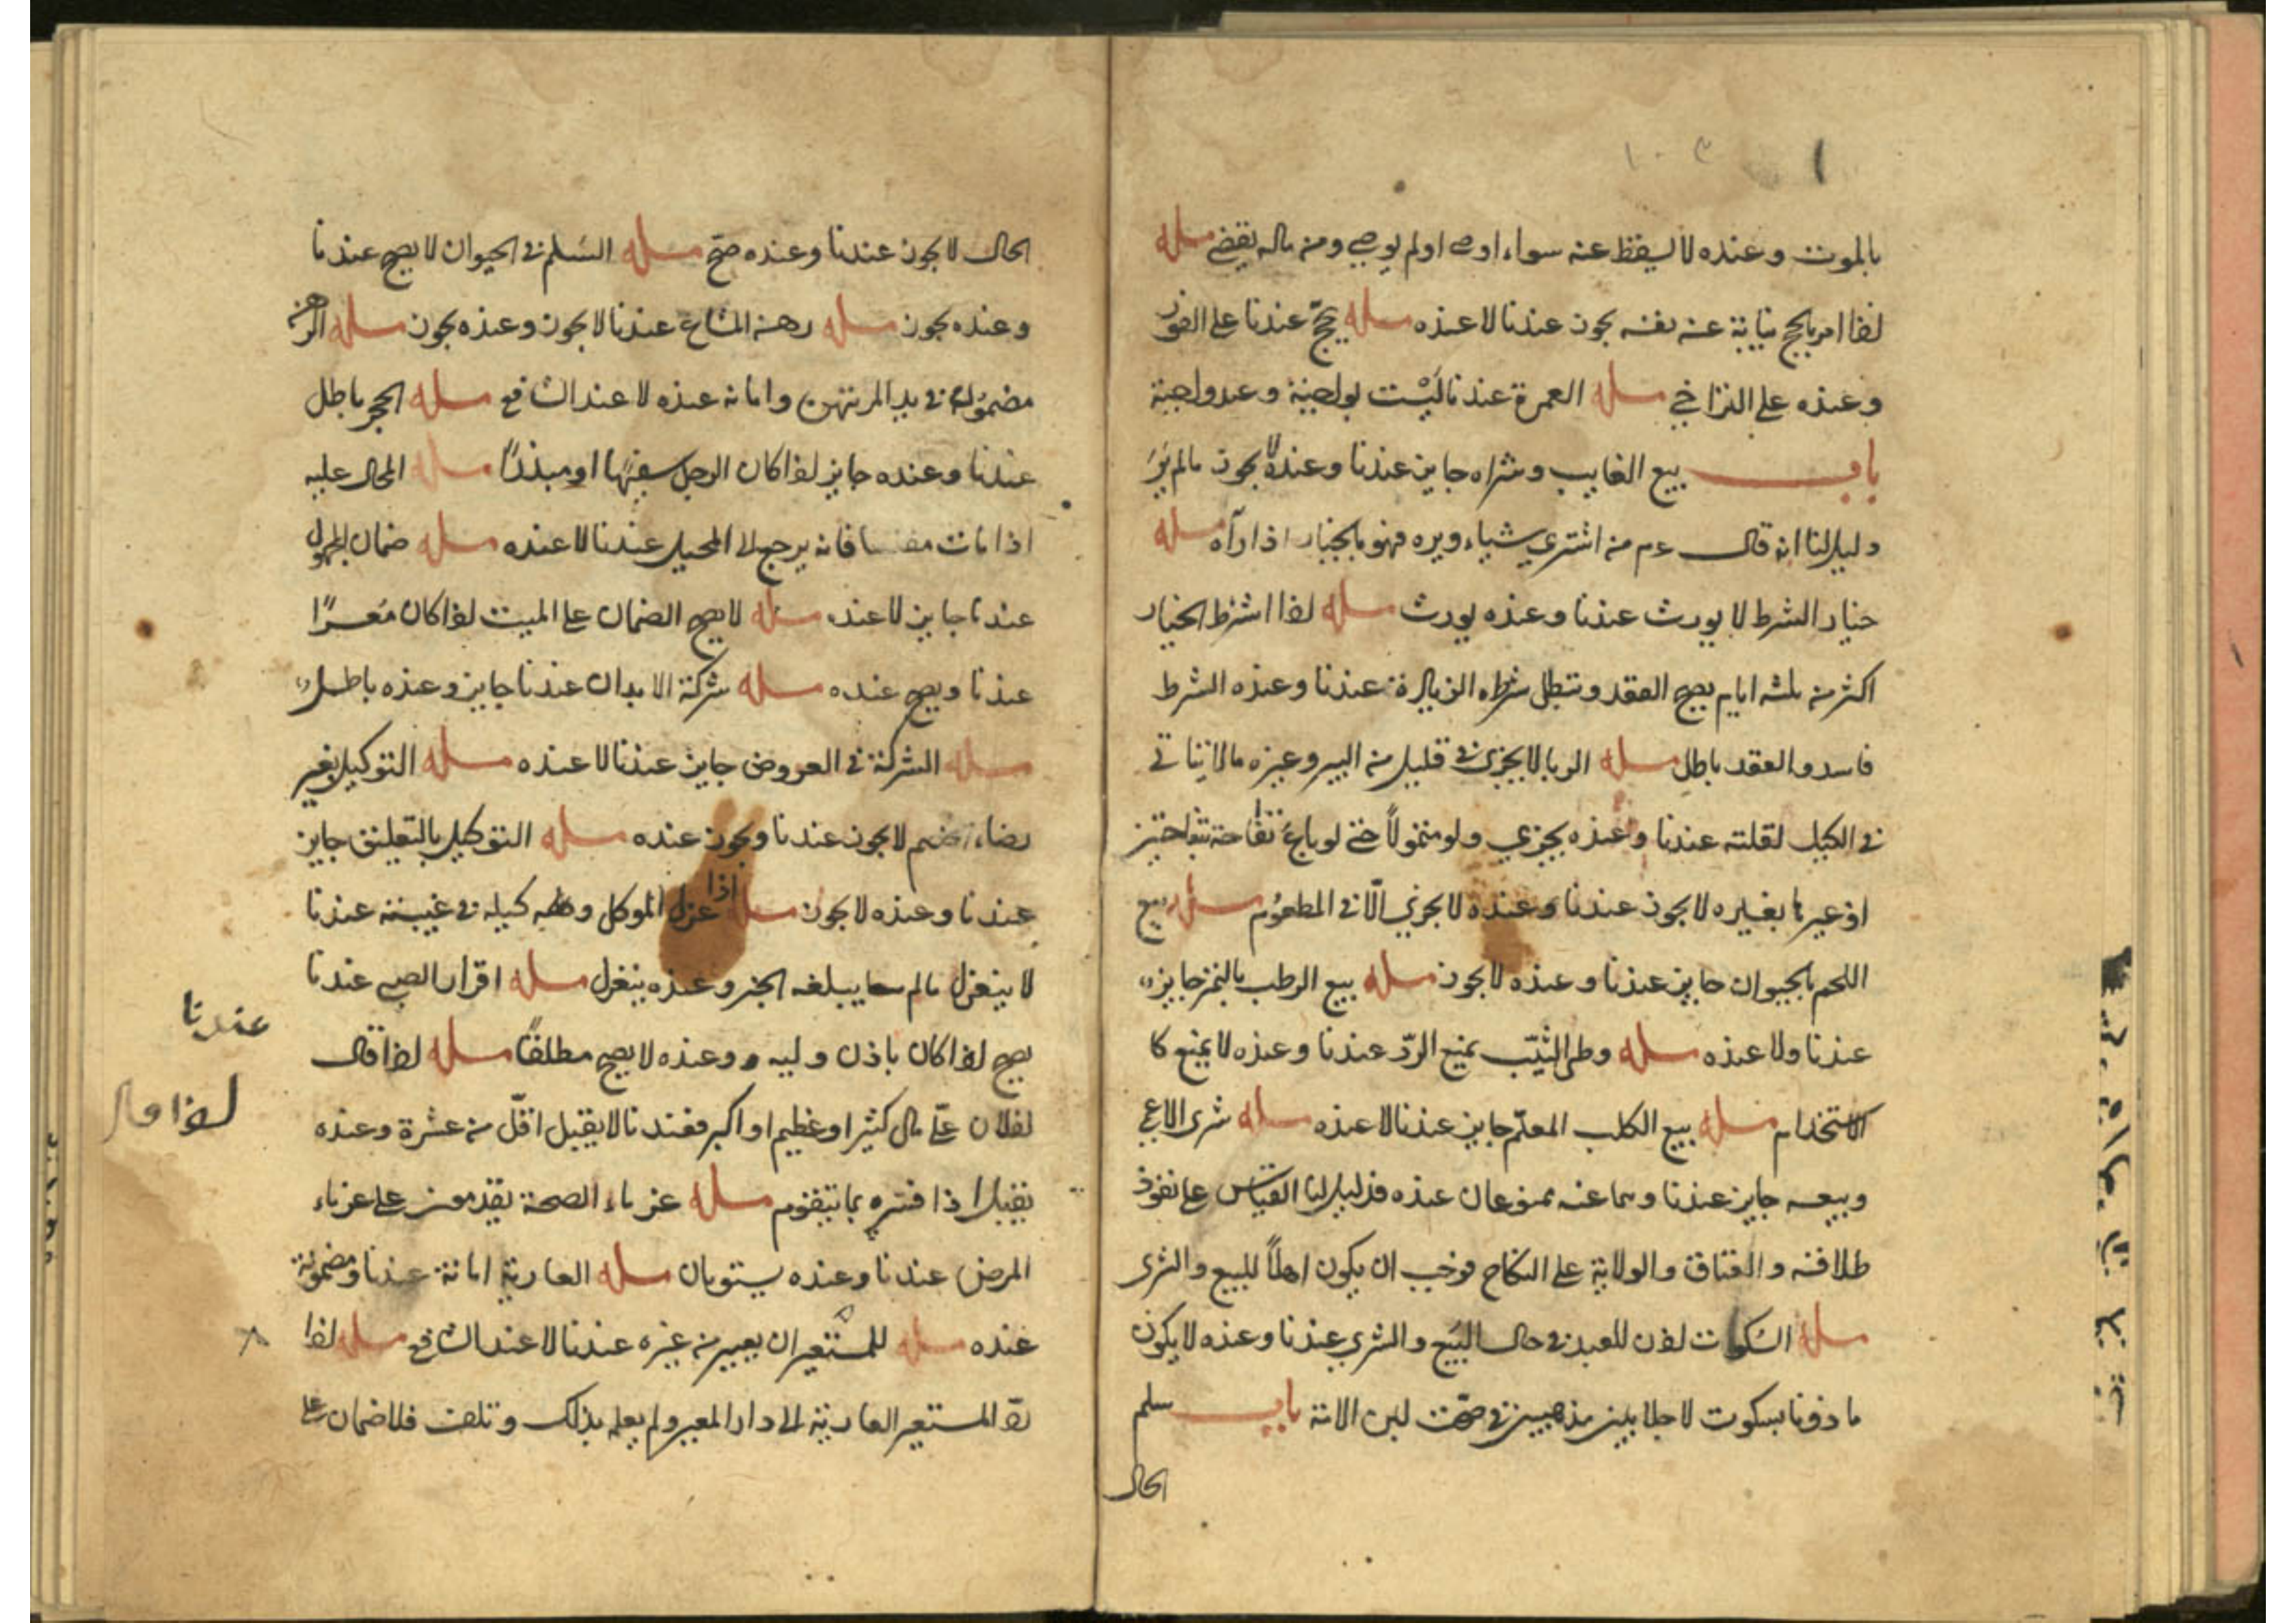 بالموت وعنده لا يسقط عنه سواء اوصى او لم يوصي ومن ماله يقضى مسله
اذا امر بالحج نيابة عنه بفسه يجوز عندنا لا عنده مسله يحج عندنا على الفور
وعنده على التراخي مسله العمرة عندنا ليست بواجبة وعنده واجبة
باب بيع الغايب وشراه جايز عندنا وعنده لا يجوز مالم ير
دليل لنا انه قال عم من اشتري شياء ويره فهو بالخيار اذا رآه مسله
خيار الشرط لا يورث عندنا وعنده يورث مسله اذا اشترط الخيار
اكثر من ثلثه ايام يصح العقد وتبطل شرطه الزيادة عندنا وعنده الشرط
فاسد والعقد باطل مسله الربا لا يجزي في قليل من البر وغيره مالا يتاتي
في الكيل لقلته عندنا وعنده يجزي ولو متمولاً حتى لو باع تفاحة بتفاحتين
او غيرها بغيره لا يجوز عندنا وعنده لا يجزي الّا في المطعوم مسله بيع
اللحم بالحيوان جايز عندنا وعنده لا يجوز مسله بيع الرطب بالتمر جايز
عندنا ولا عنده مسله وطى الثيّب يمنع الردّ عندنا وعنده لا يمنع كا
الاستخدام مسله بيع الكلب المعلّم جايز عندنا لا عنده مسله شرى الاعمى
وبيعه جايز عندنا وسماعنه ممنوعان عنده فدليل لنا القياس على نفوذ
طلاقه والعتاق والولاية على النكاح فوجب ان يكون اهلاً للبيع والشرى
مسله السكوت اذن للعبد في حال البيع والشرى عندنا وعنده لا يكون
ماذونا بسكوت لا جلا بين مذهبين في صحّت لبن الامة باب سلم
الحال
الحال لا يجوز عندنا وعنده صحّ مسله السلم في الحيوان لا يصح عندنا
وعنده يجوز مسله رهنه المشاع عندنا لا يجوز وعنده يجوز مسله الرهن
مضمونة في يد المرتهن وامانة عنده لا عند الشافعي مسله الحجر باطل
عندنا وعنده جايز اذا كان الرجل سفيها او مبذرا مسله المحال عليه
اذا مات مفلسا فانه يرجع الى المحيل عندنا لا عنده مسله ضمان المجهول
عندنا جايز لا عنده مسله لا يصح الضمان على الميت اذا كان معسرًا
عندنا ويصح عنده مسله شركة الابدان عندنا جايز وعنده باطل
مسله الشركة في العروض جايز عندنا لا عنده مسله التوكيل بغير
رضاء الخصم لا يجوز عندنا ويجوز عنده مسله التوكيل بالتعليق جايز
عندنا وعنده لا يجوز مسله اذا عزل الموكل وكيله في غيبته عندنا
لا ينعزل مالم يبلغه الخبر وعنده ينعزل مسله اقرار الصبى عندنا
عندنا
يصح اذا كان باذن وليه وعنده لا يصح مطلقًا مسله اذا قال
اذا قال
لفلان علىّ مال كثير او عظيم او اكبر فعندنا لا يقبل اقلّ من عشرة وعنده
يقبل اذا فسّره بما يتقوم مسله غرماء الصحة يقدمون على غرماء
المرض عندنا وعنده يستويان مسله العارية امانة عندنا ومضمونة
عنده مسله للمستعير ان يعير من غيره عندنا لا عند الشافعي مسله اذا
ردّ المستعير العارية الى دار المعير ولم يعلم بذلك وتلفت فلا ضمان على